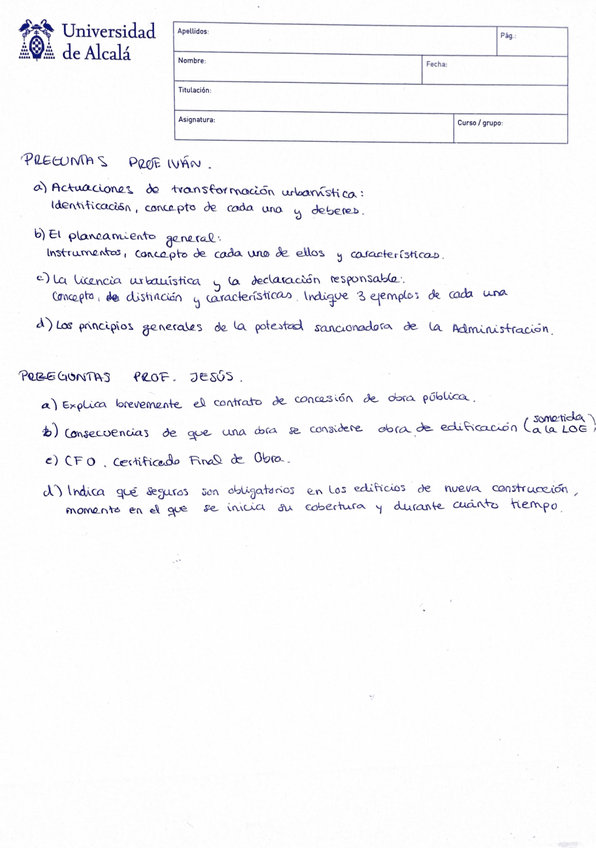 Universidad
de Alcalá
Apellidos:
Pág.:
Nombre:
Fecha:
Titulación:
Asignatura:
Curso / grupo:
PREGUNTAS PROF. IVÁN.
a) Actuaciones de transformación urbanística:
Identificación, concepto de cada una y deberes.
b) El planeamiento general:
Instrumentos, concepto de cada uno de ellos y características.
c) La licencia urbanística y la declaración responsable:
Concepto, distinción y características. Indique 3 ejemplos de cada una
d) Los principios generales de la potestad sancionadora de la Administración.
PREGUNTAS PROF. JESÚS.
a) Explica brevemente el contrato de concesión de obra pública.
b) Consecuencias de que una obra se considere obra de edificación (sometida
a la LOE)
c) CFO. Certificado Final de Obra.
d) Indica qué seguros son obligatorios en los edificios de nueva construcción,
momento en el que se inicia su cobertura y durante cuánto tiempo.